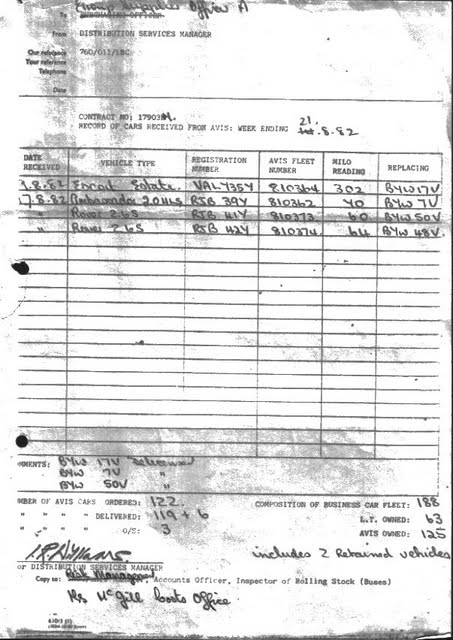 Group Supplies Officer A
To PURCHASING OFFICER
From DISTRIBUTION SERVICES MANAGER
Our reference 760/011/LBC
Your reference
Telephone
Date
CONTRACT NO: 17903
RECORD OF CARS RECEIVED FROM AVIS: WEEK ENDING 21.8.82
DATE RECEIVED VEHICLE TYPE REGISTRATION NUMBER AVIS FLEET NUMBER MILO READING REPLACING
.8.82 Escort Estate VAL 735Y 810364 302 BYW 17V
17.8.82 Ambassador 2.0HLS RJB 39Y 810362 40 BYW 7V
" Rover 2.6S RJB 41Y 810373 60 BYW 50V
" Rover 2.6S RJB 42Y 810374 64 BYW 48V
MMENTS: BYW 17V Delicensed
BYW 7V "
BYW 50V "
MBER OF AVIS CARS ORDERED: 122
" " " " DELIVERED: 119 + 6
" " " " O/S: 3
COMPOSITION OF BUSINESS CAR FLEET: 188
L.T. OWNED: 63
AVIS OWNED: 125
includes 2 Retained vehicles
or DISTRIBUTION SERVICES MANAGER
Copy to: Accounts Officer, Inspector of Rolling Stock (Buses)
Ms McGill Costs Office